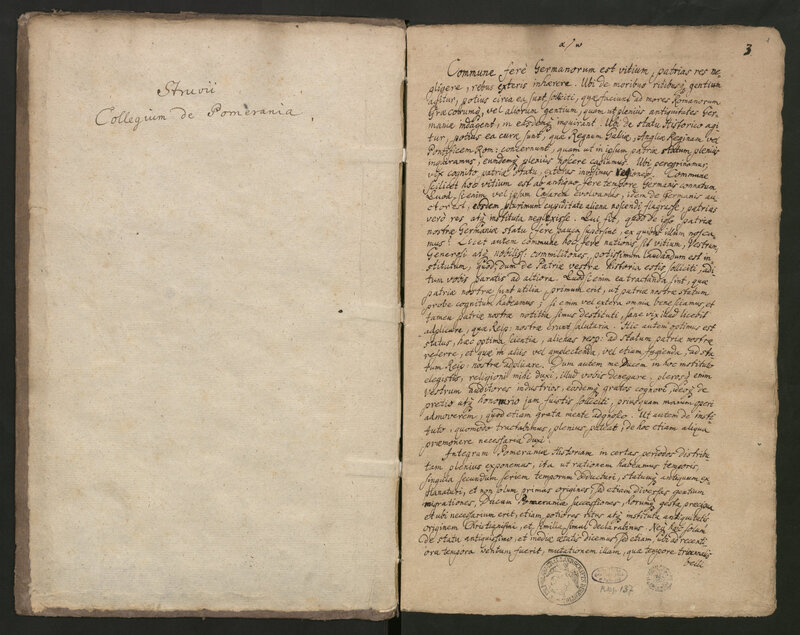 Struvii
Collegium de Pomerania.
3
Commune ferè Germanorum est vitium, patrias res ne-
gligere, rebus exteris inhærere. Ubi de moribus ritibusq gentium
agitur, potius circa ea sunt solliciti, quæ faciunt ad mores Romanorum
Græcorumq, vel aliorum gentium, quam ut plenius antiquitates Ger-
maniæ indagent, in easdemq inquirant. Ubi de statu Historico agi
tur, potius ea curæ sunt, quæ Regnum Galliæ, Angliæ Reginam vel
Pontificem Rom: concernunt, quam ut in ipsum patriæ statum plenius
inquiramus, eundemq plenius noscere capiamus. Ubi peregrinamur,
vix cognito patriæ statu, exteras invisimus regiones. Commune
scilicet hoc vitium est ab antiquo fere tempore Germanis connatum.
Quod si enim vel ipsum Cæsarem evolvamus, idem de Germanis au
ctor est, eosdem plurimum cupiditate aliena noscendi flagrasse, patrias
verò res atq instituta neglexisse. Qui fit, quod de ipso patriæ
nostræ Germaniæ statu fere pauca supersint, ex quibus illum nosca
mus. Licet autem commune hoc fere nationis sit vitium, Vestrum,
Generosi atq nobiliss. commilitones, potissimum laudandum est in
stitutum, quod, dum de Patriæ vestræ Historia estis solliciti, adi
tum vobis paratis ad altiora. Quod si enim ea tractanda sint, quæ
patriæ nostræ sunt utilia, primum erit, ut patriæ nostræ statum
probe cognitum habeamus; si enim vel extera omnia bene sciamus, et
tamen patriæ nostræ notitia simus destituti, sane vix illud licebit
adplicare, quæ Reip: nostræ erunt salutaria. Hic autem optimus est
status, hæc optima scientia, alienas resp: ad statum patriæ nostræ
referre, et quæ in aliis vel amplectenda, vel etiam fugienda, ad sta-
tum Reip: nostræ adplicare. Dum autem me Ducem in hoc instituto
elegistis, religioni mihi duxi, illud vobis denegare, pleros enim
vestrum auditores industrios, eosdemq gratos cognovi, ideoq de
pretio atq honorario jam fuistis solliciti, priusquam manum operi
admoverem, quod etiam grata mente adgnosco. Ut autem de insti-
tuto, quomodo tractabimus, plenius pateat, de hoc etiam aliqua
præmonere necessarea duxi.
Integram Pomeraniæ Historiam in certas periodos distribu
tam plenius exponemus, ita ut rationem habeamus temporis,
singula secundum seriem temporum deducturi, statumq antiquum ex-
planaturi, et non solum primas origines, sed etiam diversas gentium
migrationes, Ducum Pomeraniæ successiones, horumq gesta præcipua
et ubi necessarium erit, etiam potiores ritus atq instituta antiquitatis
originem Christianismi, et similia simul declarabimus. Neq hoc solum
de statu antiquissimo, et mediæ ætatis dicemus, sed etiam, ubi ad recenti
ora tempora ventum fuerit, mutationem illam, quæ tempore tricennalis
belli
Rkp. 137